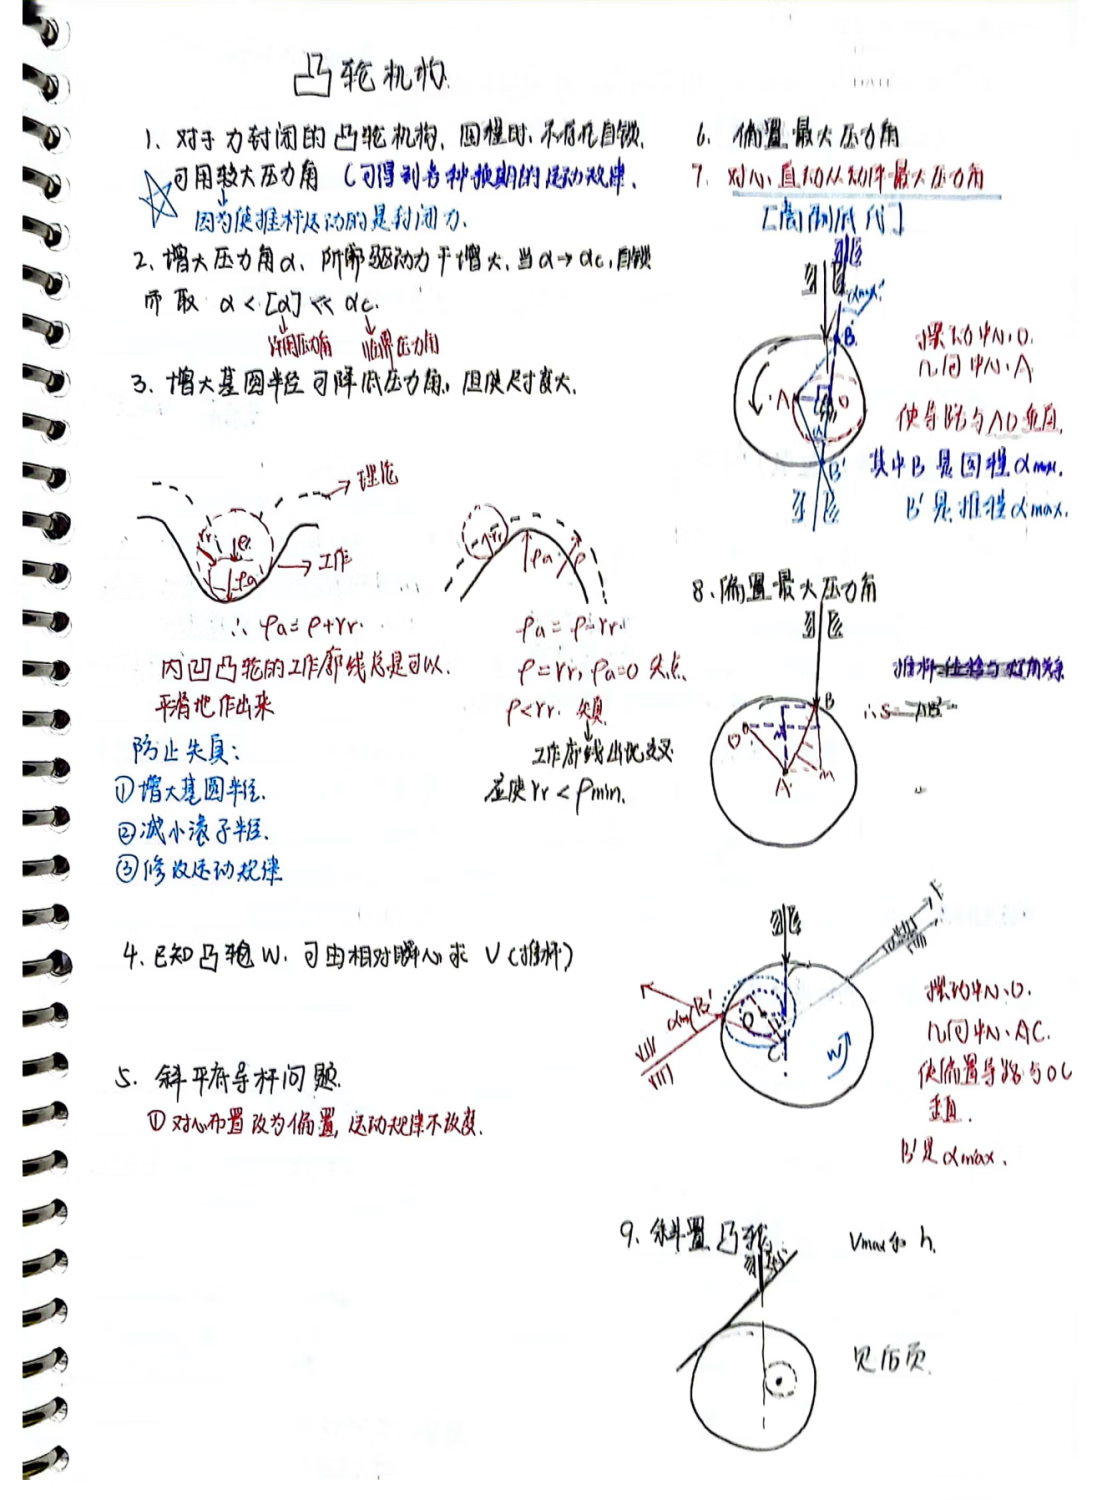 凸轮机构.
1、对于力封闭的凸轮机构,回程时,不存在自锁.
可用较大压力角 (可得到各种预期的运动规律.
因为使推杆运动的是封闭力.
2、增大压力角α、所需驱动力F增大、当α→αc,自锁
而取 α<[α]≪αc.
许用压力角 临界压力角
3、增大基圆半径可降低压力角,但使尺寸变大.
理论
rr
ρ
ρa
工作
∴ ρa=ρ+rr.
内凹凸轮的工作廓线总是可以.
平滑地作出来
rr
ρa
ρ
ρa=ρ-rr.
ρ=rr, ρa=0 尖点.
ρ<rr. 失真
工作廓线出现交叉
应使rr<ρmin.
防止失真:
①增大基圆半径.
②减小滚子半径.
③修改运动规律
4、已知凸轮W、可由相对瞬心求 V(推杆)
5、斜平底导杆问题.
①对心布置改为偏置,运动规律不改变.
6、偏置最大压力角
7、对心直动从动件最大压力角
αmax
B
A
O
B'
摆动中心O.
几何中心A
使导路与AO垂直.
其中B是回程αmax.
B'是推程αmax.
8、偏置最大压力角
B
O
A
M
∴S=
B'
O
C
W
摆动中心O.
几何中心AC.
使偏置导路与OC
垂直.
B'是αmax.
9、斜置凸轮
Vmax和 h.
45°
见后页